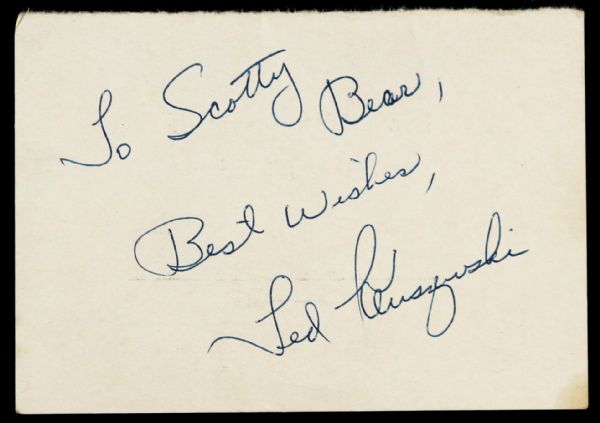 To Scotty Bear,
Best Wishes,
Ted Kluszewski